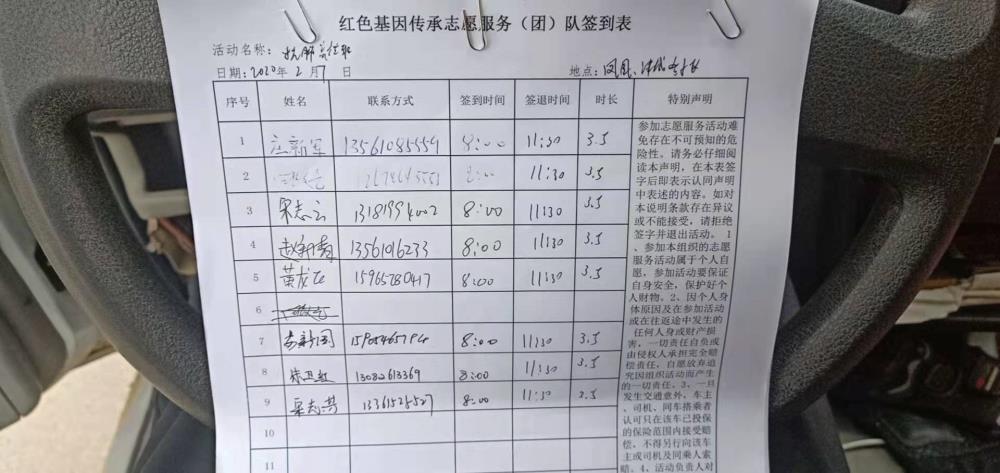 红色基因传承志愿服务（团）队签到表
活动名称：
日期：2020年 2 月 7 日 地点：
序号 姓名 联系方式 签到时间 签退时间 时长 特别声明
1 庄新军 13561085559 8:00 11:30 3.5
2 8:00 11:30 3.5
3 宋志云 13181994002 8:00 11:30 3.5
4 赵新春 13561016233 8:00 11:30 3.5
5 黄龙在 15965780417 8:00 11:30 3.5
6
7 8:00 11:30 3.5
8 13082613369 8:00 11:30 3.5
9 13361525527 8:00 11:30
10
11
参加志愿服务活动难
免存在不可预知的危
险性。请务必仔细阅
读本声明，在本表签
字后即表示认同声明
中表述的内容。如对
本说明条款存在异议
或不能接受，请拒绝
签字并退出活动。 1
、参加本组织的志愿
服务活动属于个人自
愿，参加活动要保证
自身安全，保护好个
人财物。2、因个人身
体原因及在参加活动
或在往返途中发生的
任何人身或财产损
害，一切责任自负或
由侵权人承担完全赔
偿责任，自愿放弃追
究因组织活动而产生
的一切责任。3、一旦
发生交通意外，车主
、司机、同车搭乘者
认可只在该车已投保
的保险范围内接受赔
偿，不得另行向该车
主或司机及同乘人索
赔。4、活动负责人对